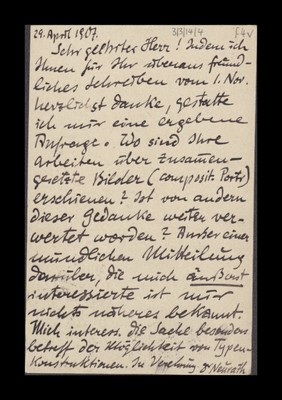 29. April 1907.
3/3/14/4
f.4v
Sehr geehrter Herr! Indem ich
Ihnen für Ihr überaus freund-
liches Schreiben vom 1. Nov.
herzlichst danke, gestatte
ich mir eine ergebene
Anfrage. Wo sind Ihre
Arbeiten über zusammen-
gesetzte Bilder (composit. Portr)
erschienen? Ist von andern
dieser Gedanke weiter ver-
wertet worden? Ausser einer
mündlichen Mitteilung
darüber, die mich äußerst
interessierte ist mir
nichts näheres bekannt.
Mich interess. die Sache besonders
betreff der Möglichkeit von Typen-
Konstruktionen. In Verehrung Dr Neurath